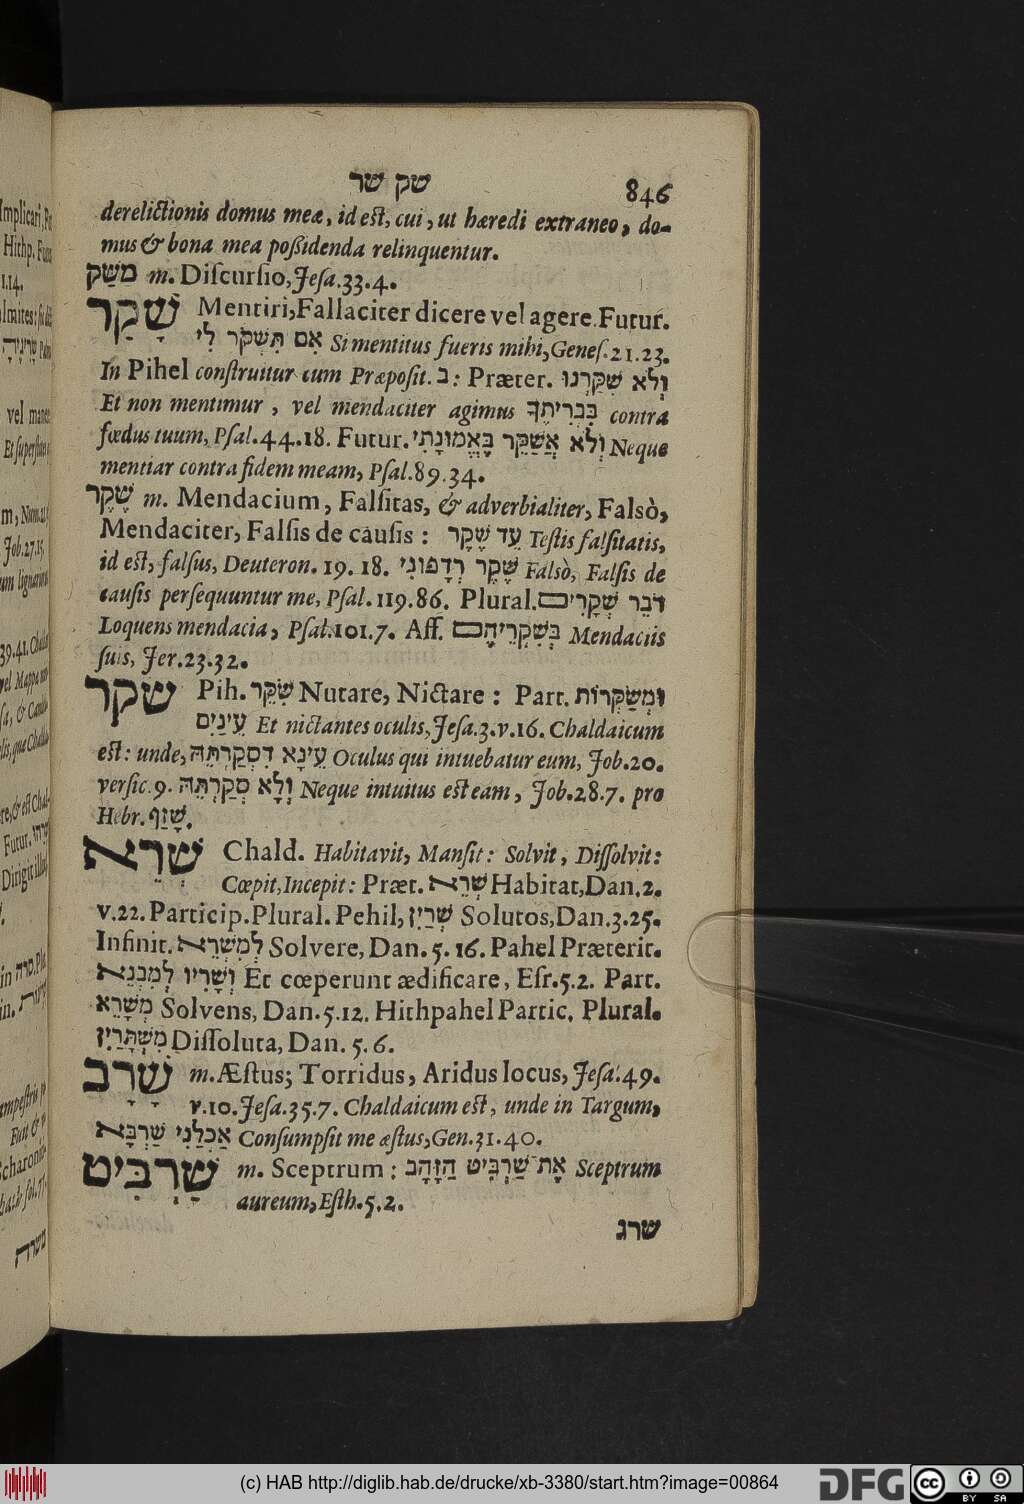 שק שר 846
derelictionis domus meæ, id est, cui, ut hæredi extraneo, do-
mus & bona mea poßidenda relinquentur.
מַשָּׁק m. Discursio, Jesa.33.4.
שָׁקַר Mentiri, Fallaciter dicere vel agere. Futur.
אִם תִּשְׁקֹר לִי Si mentitus fueris mihi, Genes.21.23.
In Pihel construitur cum Præposit. בּ: Præter. וְלֹא שִׁקַּרְנוּ
Et non mentimur, vel mendaciter agimus בִּבְרִיתֶךָ contra
fœdus tuum, Psal.44.18. Futur. וְלֹא אֲשַׁקֵּר בֶּאֱמוּנָתִי Neque
mentiar contra fidem meam, Psal.89.34.
שֶׁקֶר m. Mendacium, Falsitas, & adverbialiter, Falsò,
Mendaciter, Falsis de causis: עֵד שֶׁקֶר Testis falsitatis,
id est, falsus, Deuteron.19.18. שֶׁקֶר רְדָפוּנִי Falsò, Falsis de
causis persequuntur me, Psal.119.86. Plural. דֹּבֵר שְׁקָרִים
Loquens mendacia, Psal.101.7. Aff. בְּשִׁקְרֵיהֶם Mendaciis
suis, Jer.23.32.
שקר Pih. שִׂקֵּר Nutare, Nictare: Part. וּמְשַׂקְּרוֹת
עֵינַיִם Et nictantes oculis, Jesa.3.v.16. Chaldaicum
est: unde, עֵינָא דִסְקַרְתֵּהּ Oculus qui intuebatur eum, Job.20.
versic.9. וְלָא סְקַרְתֵּהּ Neque intuitus est eam, Job.28.7. pro
Hebr. שָׁזַף.
שְׁרֵא Chald. Habitavit, Mansit: Solvit, Dissolvit:
Cœpit, Incepit: Præt. שְׁרֵא Habitat, Dan.2.
v.22. Particip. Plural. Pehil, שְׁרַיִן Solutos, Dan.3.25.
Infinit. לְמִשְׁרֵא Solvere, Dan.5.16. Pahel Præterit.
וְשָׁרִיו לְמִבְנֵא Et cœperunt ædificare, Esr.5.2. Part.
מְשָׁרֵא Solvens, Dan.5.12. Hithpahel Partic. Plural.
מִשְׁתָּרַיִן Dissoluta, Dan.5.6.
שָׁרָב m. Æstus; Torridus, Aridus locus, Jesa.49.
v.10. Jesa.35.7. Chaldaicum est, unde in Targum,
אֲכַלַנִי שַׁרְבָּא Consumpsit me æstus, Gen.31.40.
שַׁרְבִיט m. Sceptrum: אֶת־שַׁרְבִיט הַזָּהָב Sceptrum
aureum, Esth.5.2.
שרג
(c) HAB http://diglib.hab.de/drucke/xb-3380/start.htm?image=00864
DFG
cc BY SA